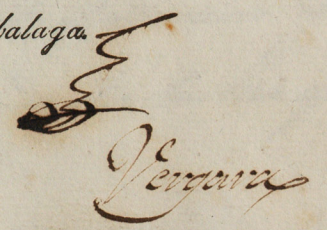 balaga.
Vergara